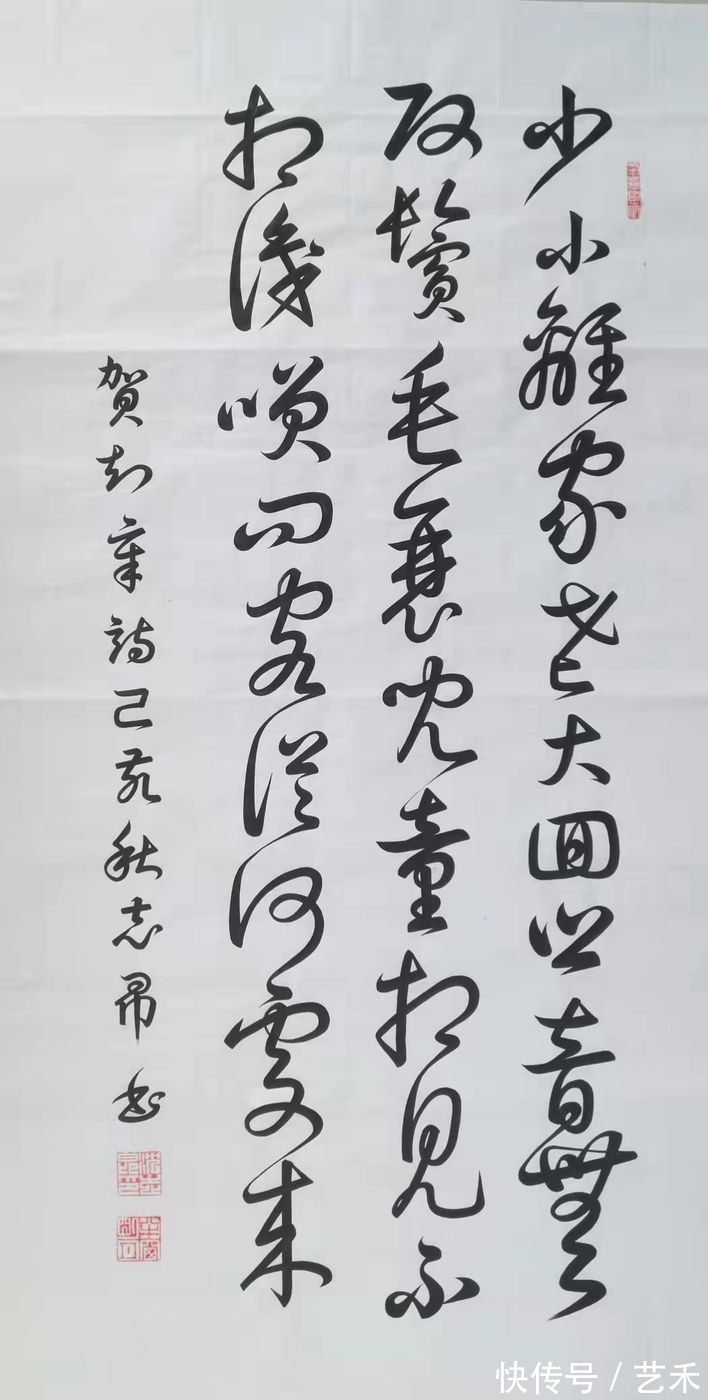 少小離家老大回鄉音無
改鬢毛衰兒童相見不
相識咲問客從何處来
賀知章詩己亥秋志昂書
快传号 / 艺禾